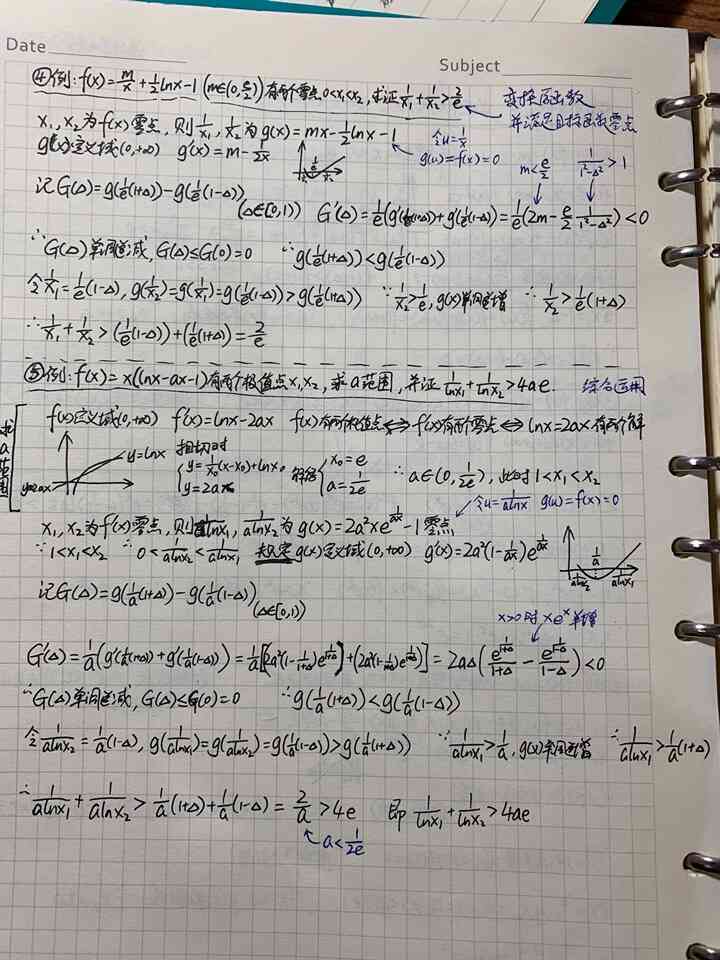 Date
Subject
④例: f(x)=m/x+½lnx-1 (m∈(0,e/2))有两个零点0<x₁<x₂, 求证1/x₁+1/x₂>2/e
变换原函数
并满足目标函数零点
x₁, x₂为f(x)零点, 则1/x₁, 1/x₂为g(x)=mx-½lnx-1
令u=1/x
g(u)=f(x)=0
g(x)定义域(0,+∞) g'(x)=m-1/2x
m<e/2 1/(1²-Δ²)>1
记G(Δ)=g(1/e(1+Δ))-g(1/e(1-Δ))
(Δ∈[0,1)) G'(Δ)=1/e(g'(1/e(1+Δ))+g'(1/e(1-Δ)))=1/e(2m-e/2 1/(1²-Δ²))<0
∴G(Δ)单调递减, G(Δ)≤G(0)=0 ∴g(1/e(1+Δ))<g(1/e(1-Δ))
令1/x₁=1/e(1-Δ), g(1/x₂)=g(1/x₁)=g(1/e(1-Δ))>g(1/e(1+Δ)) ∵1/x₂>1/e, g(x)单调递增 ∴1/x₂>1/e(1+Δ)
∴1/x₁+1/x₂>(1/e(1-Δ))+(1/e(1+Δ))=2/e
⑤例: f(x)=x(lnx-ax-1)有两个极值点x₁,x₂, 求a范围, 并证1/lnx₁+1/lnx₂>4ae. 综合运用
求a范围
f(x)定义域(0,+∞) f'(x)=lnx-2ax f(x)有两个极值点⟺f'(x)有两个零点⟺lnx=2ax有两个解
y=lnx
y=2ax
相切时
{y=1/x₀(x-x₀)+lnx₀
y=2ax
解得{x₀=e
a=1/2e
∴a∈(0,1/2e), 此时1<x₁<x₂
x₁, x₂为f'(x)零点, 则1/alnx₁, 1/alnx₂为g(x)=2a²xe^(1/ax)-1零点
令u=1/alnx g(u)=f(x)=0
∵1<x₁<x₂ ∴0<1/alnx₂<1/alnx₁ g(x)定义域(0,+∞) g'(x)=2a²(1-1/ax)e^(1/ax)
1/a
1/alnx₂ 1/alnx₁
记G(Δ)=g(1/a(1+Δ))-g(1/a(1-Δ))
(Δ∈[0,1))
x>0时xeˣ单增
G'(Δ)=1/a(g'(1/a(1+Δ))+g'(1/a(1-Δ)))=1/a[(2a²(1-1/(1+Δ))e^(1/(1+Δ)))+(2a²(1-1/(1-Δ))e^(1/(1-Δ)))]=2aΔ(e^(1/(1+Δ))/(1+Δ)-e^(1/(1-Δ))/(1-Δ))<0
∴G(Δ)单调递减, G(Δ)≤G(0)=0 ∴g(1/a(1+Δ))<g(1/a(1-Δ))
令1/alnx₂=1/a(1-Δ), g(1/alnx₁)=g(1/alnx₂)=g(1/a(1-Δ))>g(1/a(1+Δ)) ∵1/alnx₁>1/a, g(x)单调递增 ∴1/alnx₁>1/a(1+Δ)
∴1/alnx₁+1/alnx₂>1/a(1+Δ)+1/a(1-Δ)=2/a>4e 即1/lnx₁+1/lnx₂>4ae
a<1/2e